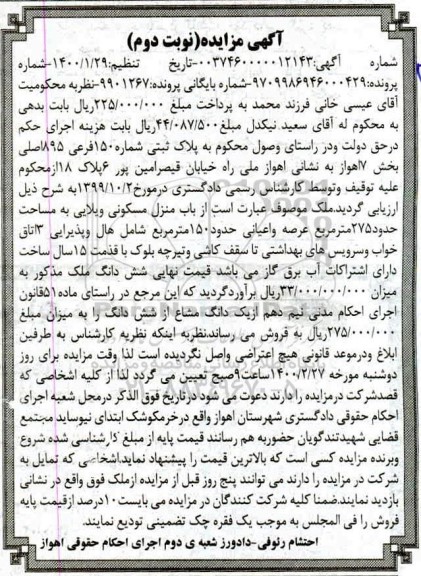 آگهی مزایده(نوبت دوم)
شماره آگهی:۰۰۳۷۴۶۰۰۰۰۰۱۲۱۴۳-تاریخ تنظیم:۱۴۰۰/۱/۲۹-شماره
پرونده:۹۷۰۹۹۸۶۹۴۶۰۰۰۴۲۹-شماره بایگانی پرونده:۹۹۰۱۲۶۷-نظربه محکومیت
آقای عیسی خانی فرزند محمد به پرداخت مبلغ ۲۲۵/۰۰۰/۰۰۰ریال بابت بدهی
به محکوم له آقای سعید نیکدل مبلغ۴۴/۰۸۷/۵۰۰ریال بابت هزینه اجرای حکم
درحق دولت ودر راستای وصول محکوم به پلاک ثبتی شماره۱۵۰فرعی ۸۹۵اصلی
بخش ۷اهواز به نشانی اهواز ملی راه خیابان قیصرامین پور ۶پلاک ۱۸ازمحکوم
علیه توقیف وتوسط کارشناس رسمی دادگستری درمورخ۱۳۹۹/۱۰/۲به شرح ذیل
ارزیابی گردید.ملک موصوف عبارت است از باب منزل مسکونی ویلایی به مساحت
حدود۲۷۵مترمربع عرصه واعیانی حدود۱۵۰مترمربع شامل هال وپذیرایی ۳اتاق
خواب وسرویس های بهداشتی تا سقف کاشی وتیرچه بلوک با قدمت ۱۵سال ساخت
دارای اشتراکات آب برق گاز می باشد قیمت نهایی شش دانگ ملک مذکور به
میزان ۳۳/۰۰۰/۰۰۰/۰۰۰ریال برآوردگردید که این مرجع در راستای ماده۵۱قانون
اجرای احکام مدنی نیم دهم ازیک دانگ مشاع از شش دانگ را به میزان مبلغ
۲۷۵/۰۰۰/۰۰۰ریال به فروش می رساندنظربه اینکه نظریه کارشناس به طرفین
ابلاغ ودرموعد قانونی هیچ اعتراضی واصل نگردیده است لذا وقت مزایده برای روز
دوشنبه مورخه ۱۴۰۰/۲/۲۷ساعت۹صبح تعیین می گردد لذا از کلیه اشخاصی که
قصدشرکت درمزایده را دارند دعوت می شود درتاریخ فوق الذکر درمحل شعبه اجرای
احکام حقوقی دادگستری شهرستان اهواز واقع درخرمکوشک ابتدای نیوساید مجتمع
قضایی شهیدتندگویان حضوربه هم رسانند قیمت پایه از مبلغ کارشناسی شده شروع
وبرنده مزایده کسی است که بالاترین قیمت را پیشنهاد نماید.اشخاصی که تمایل به
شرکت در مزایده را دارند می توانند پنج روز قبل از مزایده ازملک فوق واقع در نشانی
بازدید نمایند.ضمنا کلیه شرکت کنندگان در مزایده می بایست۱۰درصد ازقیمت پایه
فروش را فی المجلس به موجب یک فقره چک تضمینی تودیع نمایند.
احتشام رئوفی-دادورز شعبه ی دوم اجرای احکام حقوقی اهواز